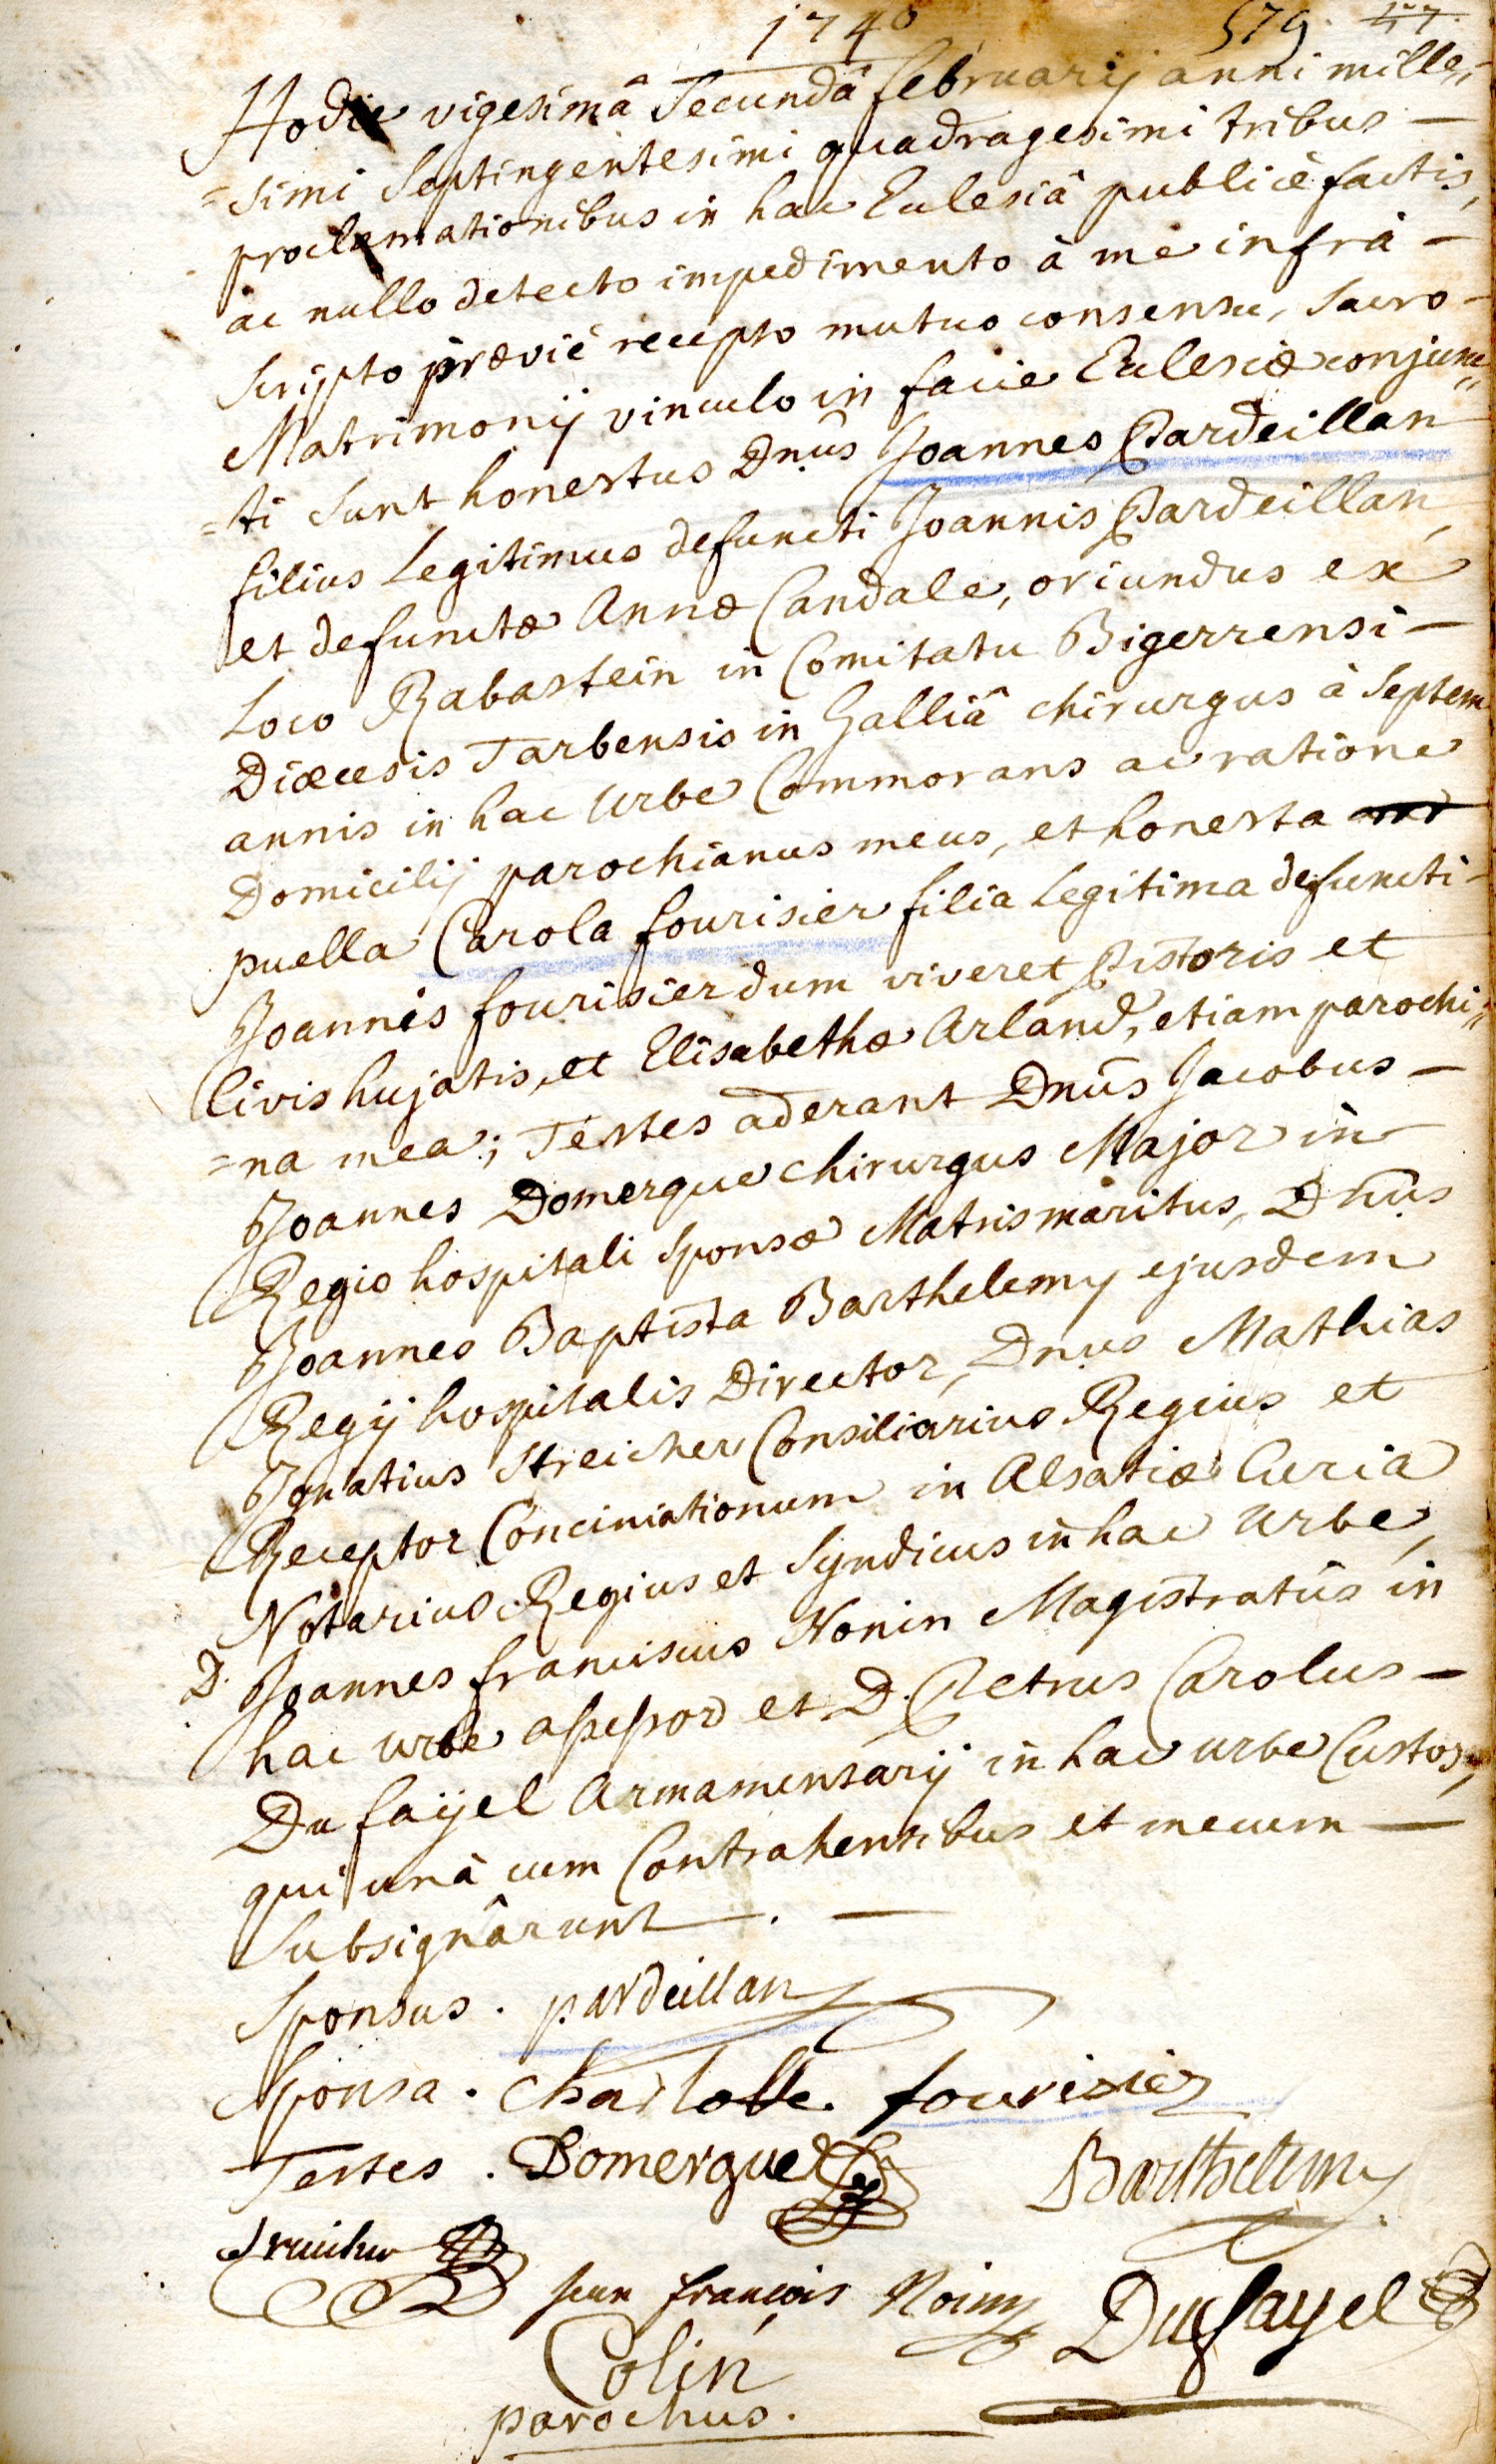 1740 579. 157.
Hodie vigesimâ Secundâ februarij anni mille„
=simi Septingentesimi quadragesimi tribus —
proclamationibus in hac Eclesiâ publicè factis,
ac nullo detecto impedimento à me infrà —
Scripto prævie recepto mutuo consensu, Sacro —
Matrimonij vinculo in facie Eclesiæ conjunc„
=ti Sunt honestus Dnus Joannes Pardeillan
filius Legitimus defuncti Joannis Pardeillan,
et defunctæ Annæ Candale, oriundus ex
Loco Rabastein in Comitatu Bigerrensi —
Diœcesis Tarbensis in Galliâ chirurgus à Septem
annis in hac Urbe Commorans ac ratione
Domicilij parochianus meus, et honesta
puella Carola fourisier filia Legitima defuncti —
Joannis fourisier dum viveret Pistoris et
Civis hujatis, et Elisabethæ Arland, etiam parochi„
=na mea; Testes aderant Dnus Jacobus —
Joannes Domergue Chirurgus Major in
Regio hospitali Sponsæ Matris maritus, Dnus
Joannes Baptista Barthelemy ejusdem
Regij hospitalis Director, Dnus Mathias
Ignatius Streicher Consiliarius Regius et
Receptor Conciniationum in Alsatiæ Curia
Notarius Regius et Syndicus in hac Urbe,
D. Joannes franciscus Nonin Magistratûs in
hac urbe assessor et D. Petrus Carolus —
Du faÿel Armamentarij in hac urbe Custos,
qui unà cum Contrahentibus et mecum —
Subsignârunt —. —
Sponsus. pardeillan
Sponsa. Charlotte. fourisier
Testes. Domergue Barthelemy
Streicher jean françois Noinn Dufayel
Colin
parochus.